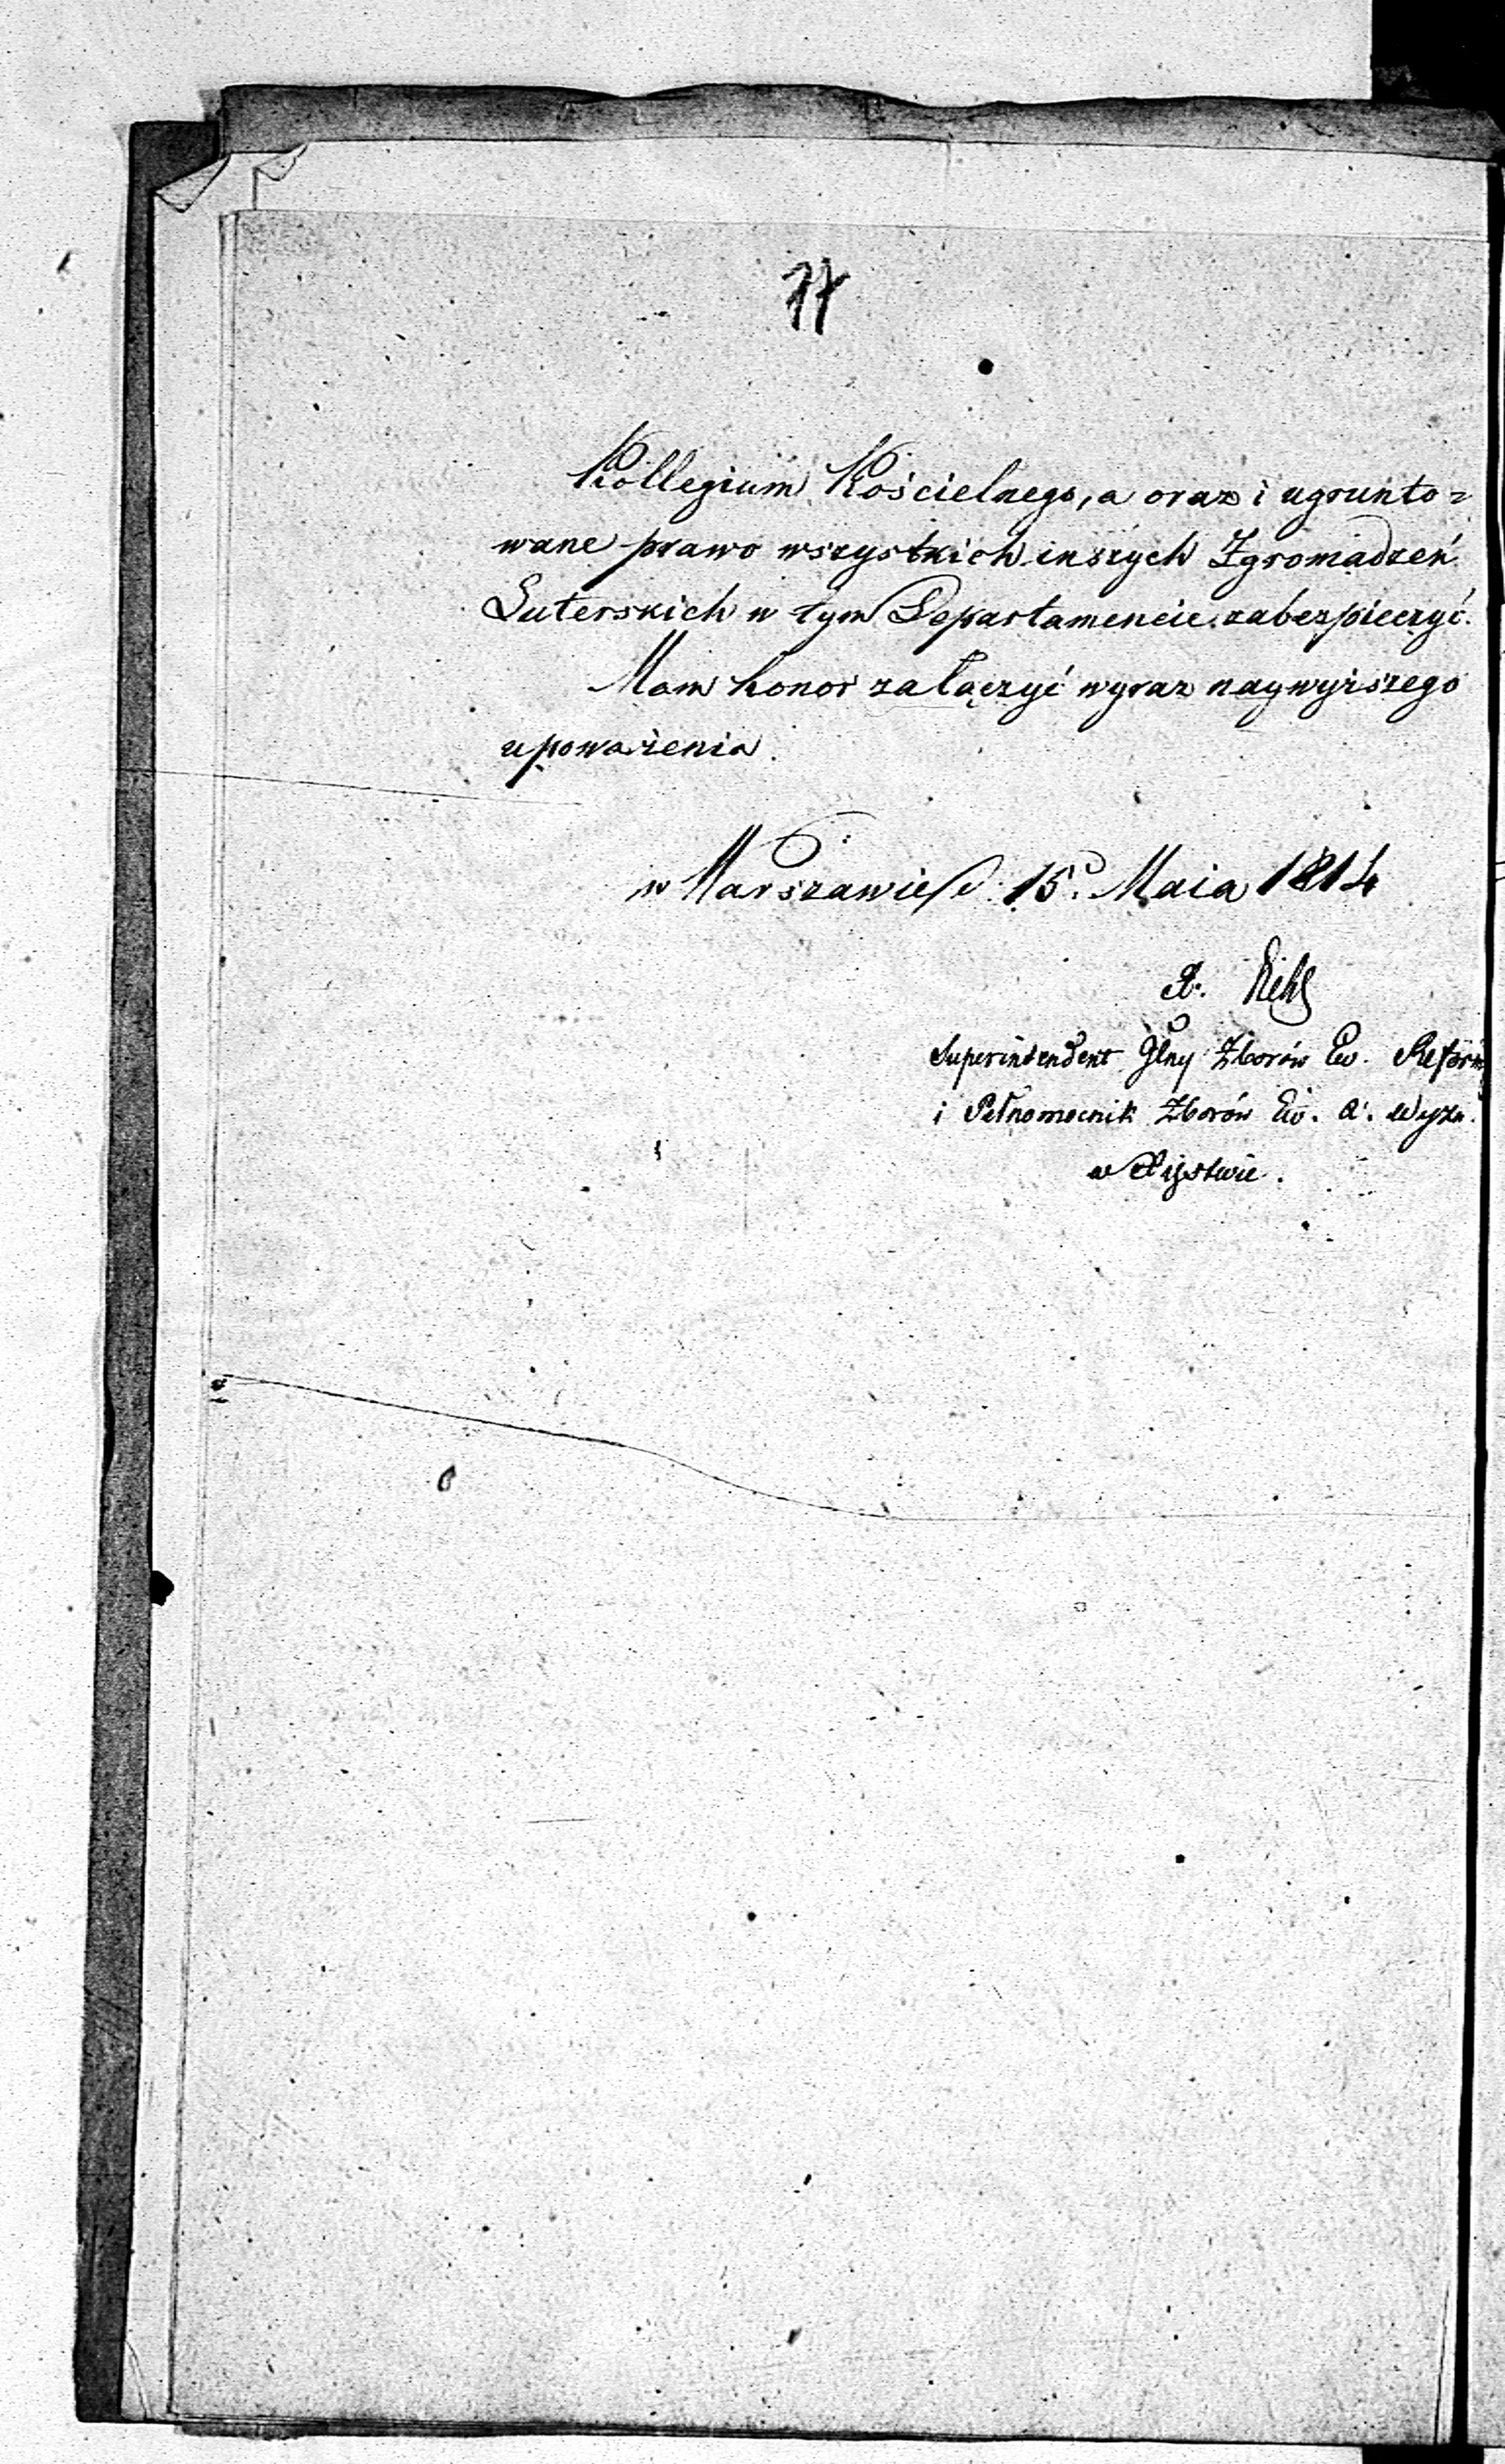 77
Kollegium Kościelnego, a oraz i ugrunto=
wane prawo wszystkich inszych Zgromadzeń
Luterskich w tym Departamencie zabezpieczyć.
Mam honor załączyć wyraz naywyższego
upoważenia.
w Warszawie d. 15. Maia 1814
X. Diehl
Superintendent Glny Zborów Ew. Reform
i Pełnomocnik Zborów Ew. A. Wyzn.
w Xięstwie.